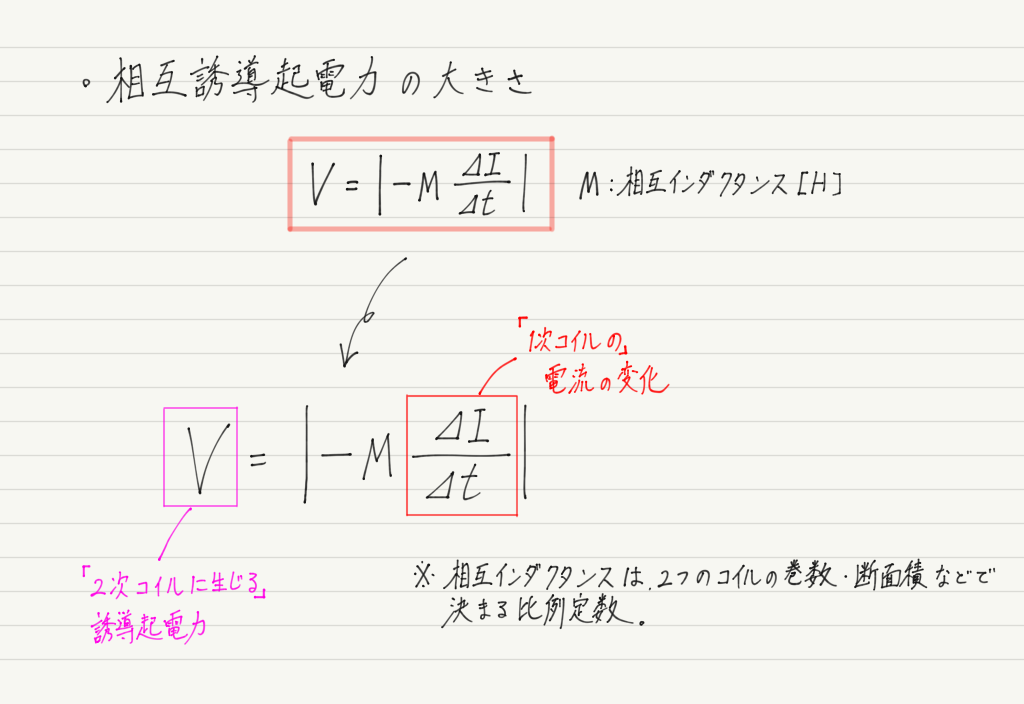 。相互誘導起電力の大きさ
V = |-M ΔI/Δt|　M:相互インダクタンス[H]
「1次コイルの」
電流の変化
V = |-M ΔI/Δt|
「2次コイルに生じる」
誘導起電力
※相互インダクタンスは、2つのコイルの巻数・断面積などで
決まる比例定数。